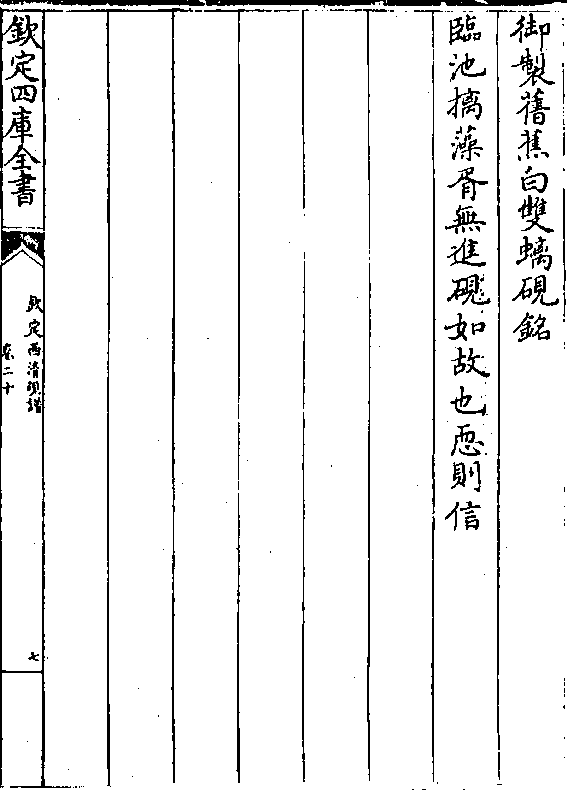 御製舊蕉白雙螭硯銘
臨池摛藻胥無進硯如故也恧則信
欽定四庫全書
欽定西清硯譜
卷二十
七